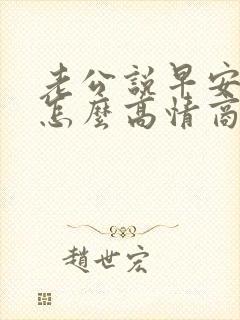 老公説早安
怎麼高情商
趙世宏